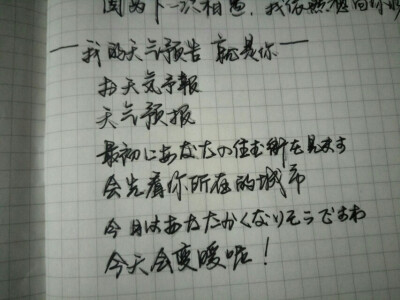 因为下一次相遇，我依然
一我的天气预告 就是你一
お天気予報
天气预报
最初にあなたの住む街を見ます
会先看你所在的城市
今日はあたたかくなりそうですね
今天会变暖啦！